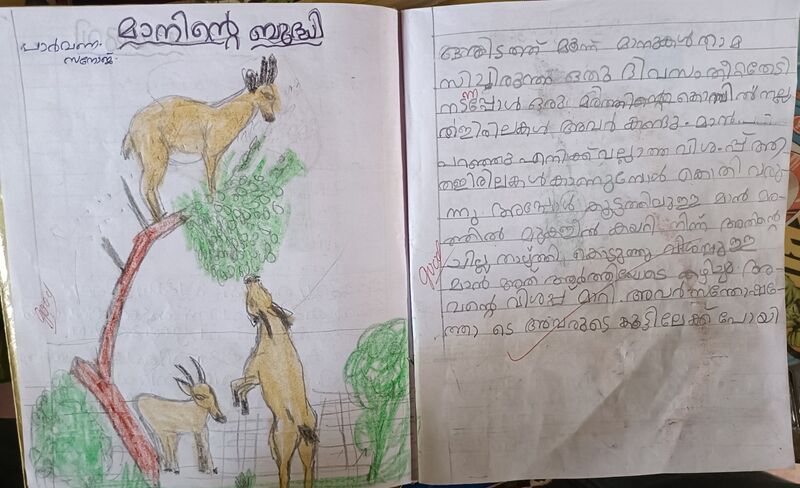 മാനിൻ്റെ ബുദ്ധി
പാർവണ
ഒരിടത്ത് മൂന്ന് മാനുകൾ താമ
സിച്ചിരുന്നു ഒരു ദിവസം തീറ്റതേടി
നടന്നപ്പോൾ ഒരു മരത്തിൻ്റെ കൊമ്പിൽ നല്ല
തളിരിലകൾ അവർ കണ്ടു. മാൻ
പറഞ്ഞു എനിക്ക് വല്ലാത്ത വിശപ്പ് ആ
തളിരിലകൾ കാണുമ്പോൾ കൊതി വരു
ന്നു അപ്പോൾ കൂട്ടത്തിലുള്ള മാൻ മര
ത്തിൽ മുകളിൽ കയറി നിന്ന് അതിൻ്റെ
ചില്ല താഴ്ത്തി കൊടുത്തു വിശപ്പുള്ള
മാൻ അത് ആർത്തിയോടെ കഴിച്ചു അ
വൻ്റെ വിശപ്പ് മാറി. അവർ സന്തോഷ
ത്തോടെ അവരുടെ കൂട്ടിലേക്ക് പോയി
good
good